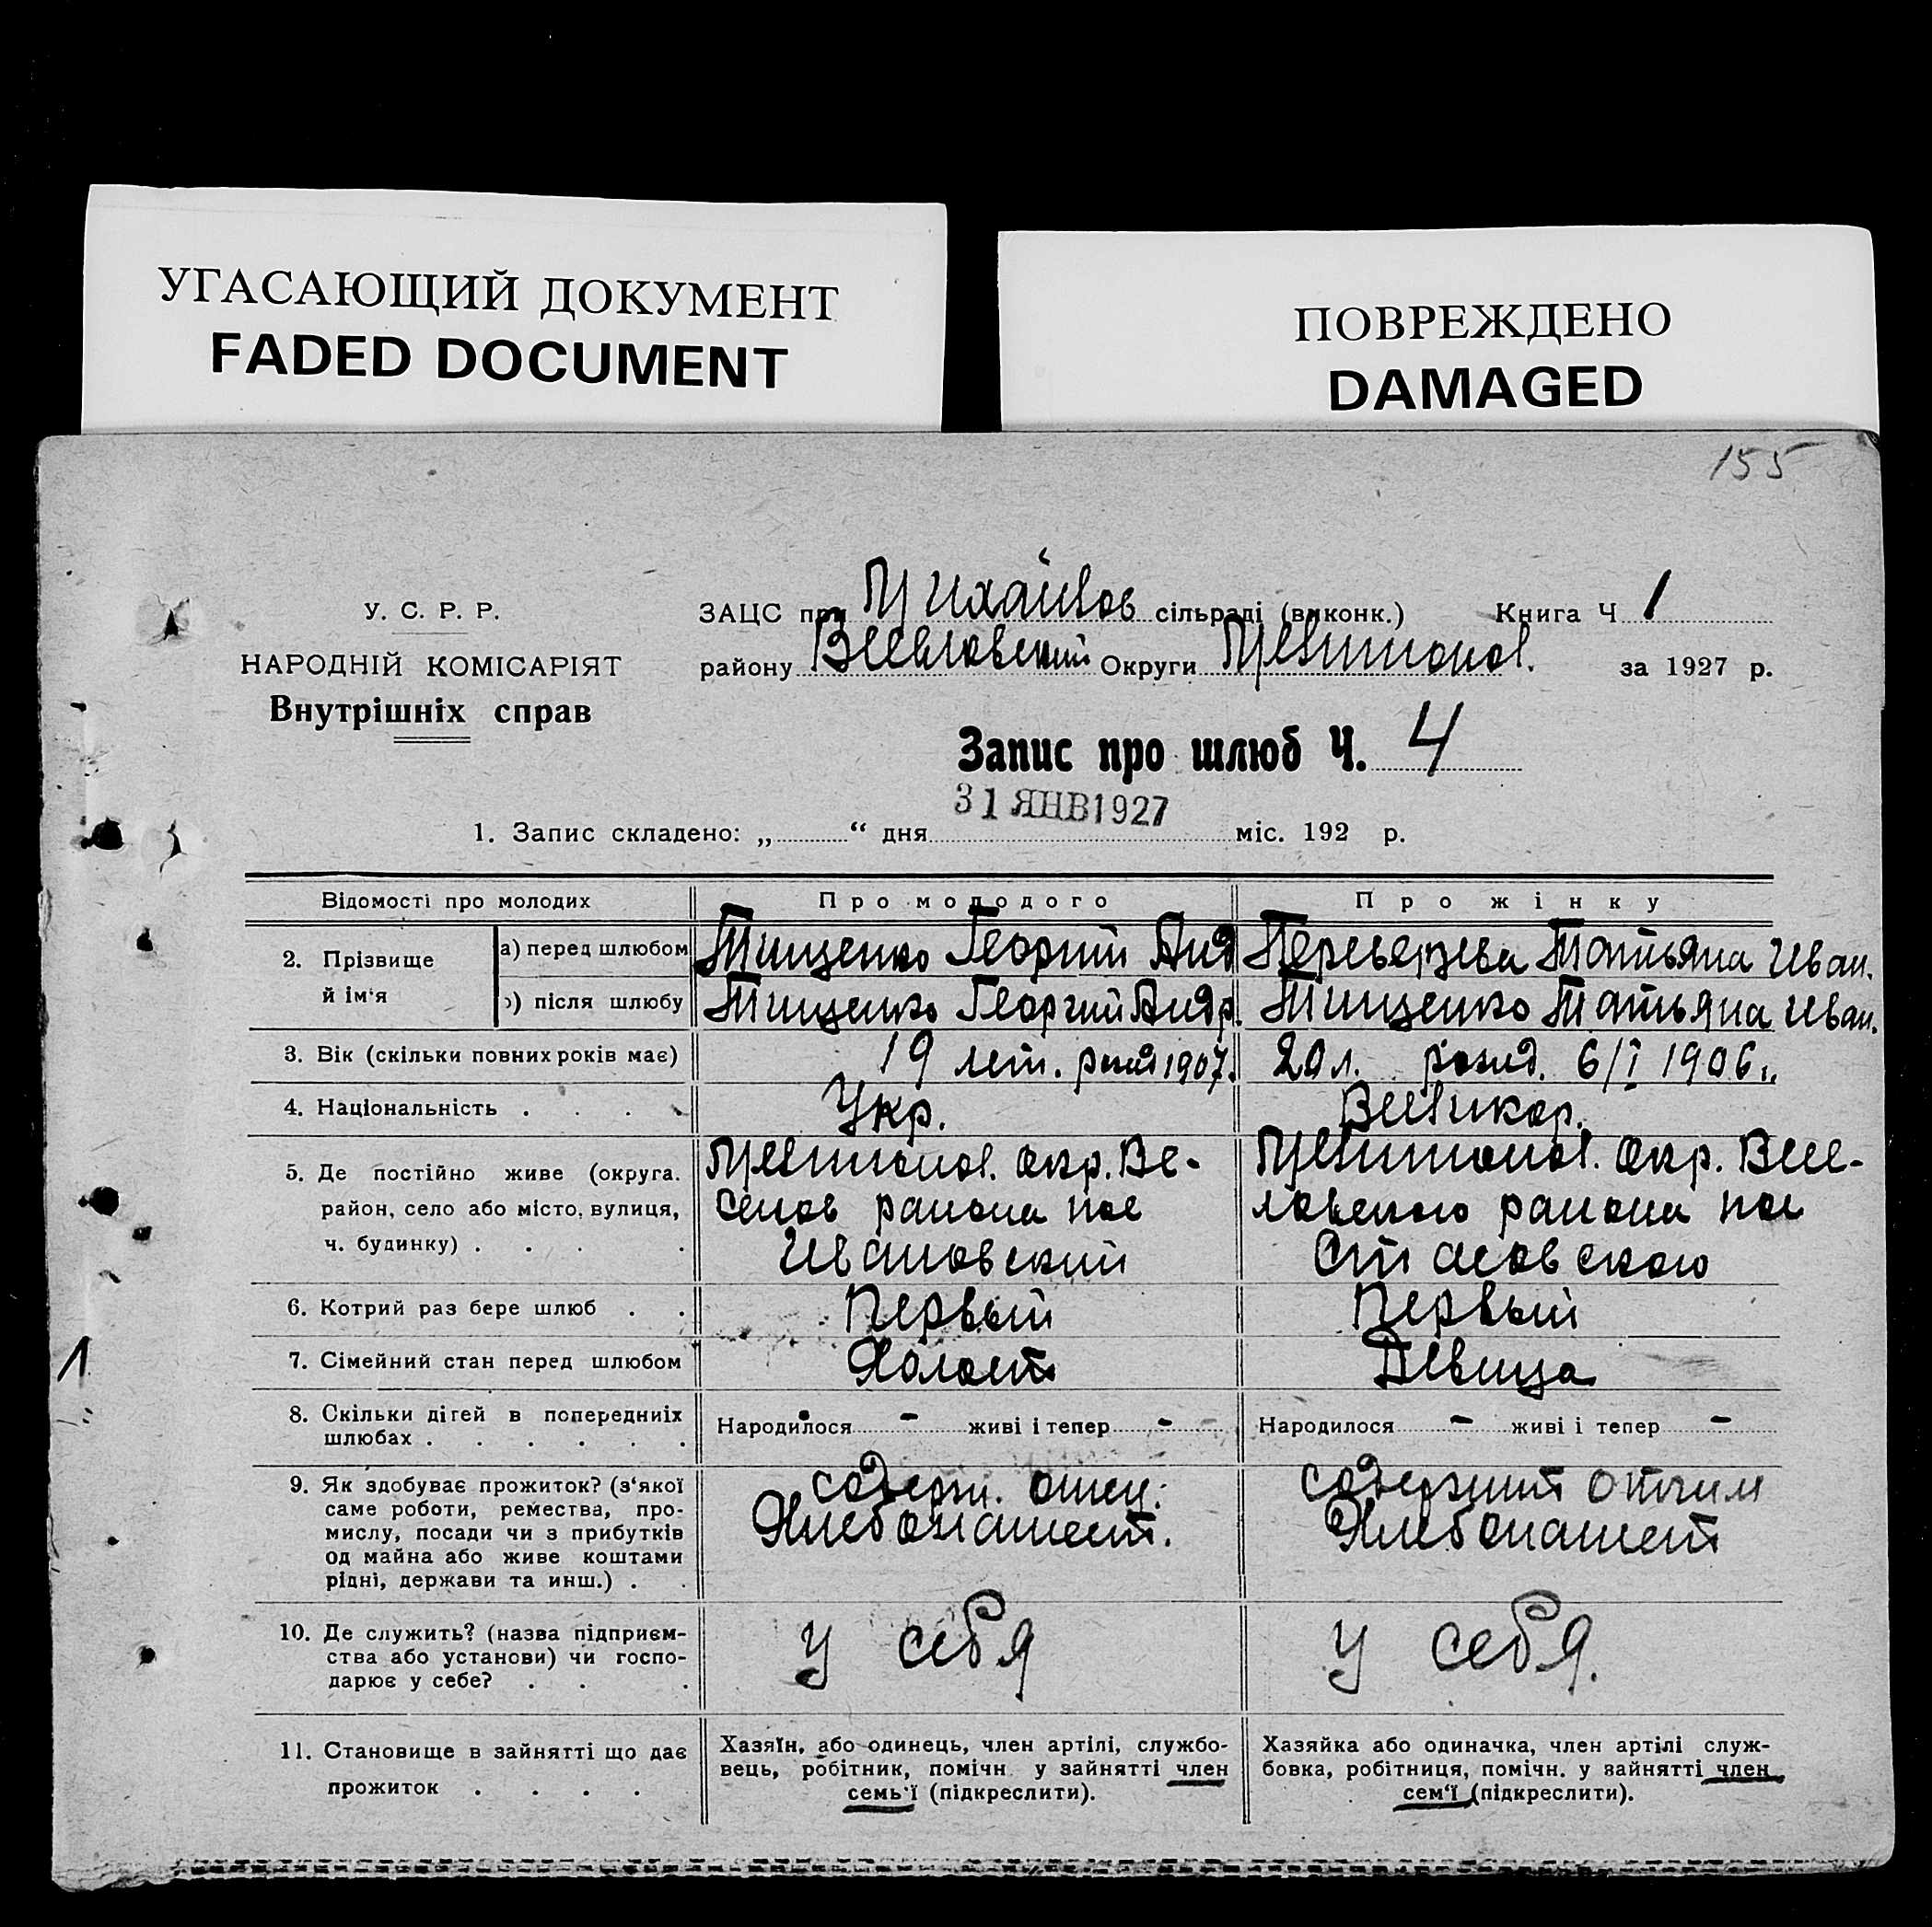 УГАСАЮЩИЙ ДОКУМЕНТ
FADED DOCUMENT
ПОВРЕЖДЕНО
DAMAGED
155
У. С. Р. Р.
НАРОДНІЙ КОМІСАРІЯТ
Внутрішніх справ
ЗАЦС при Михайлов сільраді (виконк.) Книга Ч 1
району Веселовский Округи Мелитопол. за 1927 р.
Запис про шлюб Ч. 4
31 ЯНВ 1927
1. Запис складено: „ “ дня міс. 192 р.
Відомості про молодих Про молодого Про жінку
2. Прізвище й ім‘я а) перед шлюбом Тищенко Георгий Анд Переверзева Татьяна Иван.
б) після шлюбу Тищенко Георгий Андр. Тищенко Татьяна Иван.
3. Вік (скільки повних років має) 19 лет. рожд 1907. 20 л. рожд. 6/I 1906 г.
4. Національність . . . . Укр. Великор.
5. Де постійно живе (округа. Мелитопол. окр. Ве- Мелитопол. Окр. Весе-
район, село або місто, вулиця, селов района пос ловского района пос
ч. будинку) . . . . Ивановский
6. Котрий раз бере шлюб . . Первый Первый
7. Сімейний стан перед шлюбом Холост Девица
8. Скільки дітей в попередніїх шлюбах . . . . . . Народилося - живі і тепер - Народилося - живі і тепер -
9. Як здобуває прожиток? (з‘якої содерж. отец. содержит отчим
саме роботи, ремества, про- Хлебопашест. Хлебопашест
мислу, посади чи з прибутків
од майна або живе коштами
рідні, держави та инш.) . .
10. Де служить? (назва підприєм- у себя у себя.
ства або установи) чи госпо-
дарює у себе? . . .
11. Становище в зайнятті що дає Хазяїн, або одинець, член артілі, службо- Хазяйка або одиначка, член артілі служ-
прожиток . . . . вець, робітник, помічн у зайнятті член бовка, робітниця, помічн. у зайнятті член
семь‘ї (підкреслити). сем‘ї (підкреслити).
1